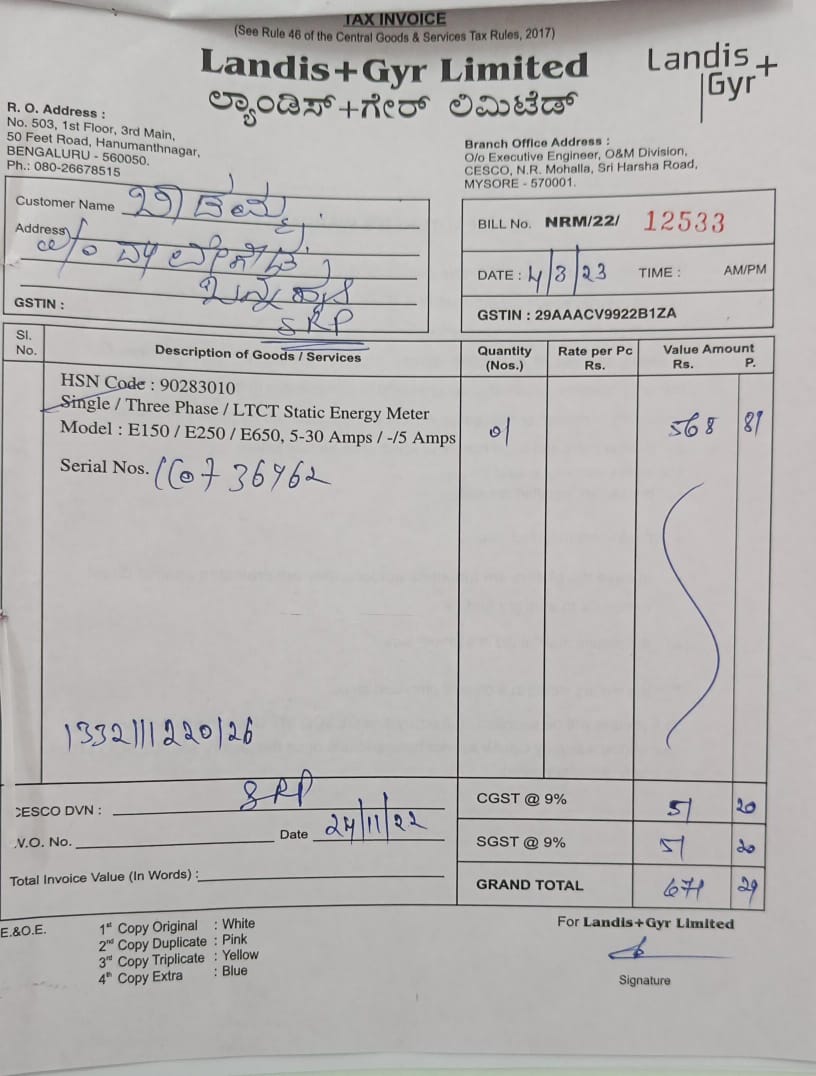 TAX INVOICE
(See Rule 46 of the Central Goods & Services Tax Rules, 2017)
Landis+Gyr Limited
Landis
Gyr+
ಲ್ಯಾಂಡಿಸ್+ಗೇರ್ ಲಿಮಿಟೆಡ್
R. O. Address :
No. 503, 1st Floor, 3rd Main,
50 Feet Road, Hanumanthnagar,
BENGALURU - 560050.
Ph.: 080-26678515
Branch Office Address :
O/o Executive Engineer, O&M Division,
CESCO, N.R. Mohalla, Sri Harsha Road,
MYSORE - 570001.
Customer Name
Address
GSTIN :
SRP
BILL No. NRM/22/ 12533
DATE : 4/3/23 TIME : AM/PM
GSTIN : 29AAACV9922B1ZA
Sl. No. Description of Goods / Services Quantity (Nos.) Rate per Pc Rs. Value Amount Rs. P.
HSN Code : 90283010
Single / Three Phase / LTCT Static Energy Meter
Model : E150 / E250 / E650, 5-30 Amps / -/5 Amps 01 568 81
Serial Nos.
CESCO DVN : SRP
W.O. No. Date 24/11/22
Total Invoice Value (In Words) :
CGST @ 9% 51 20
SGST @ 9% 51 20
GRAND TOTAL 671 29
E.&O.E.
1st Copy Original : White
2nd Copy Duplicate : Pink
3rd Copy Triplicate : Yellow
4th Copy Extra : Blue
For Landis+Gyr Limited
Signature